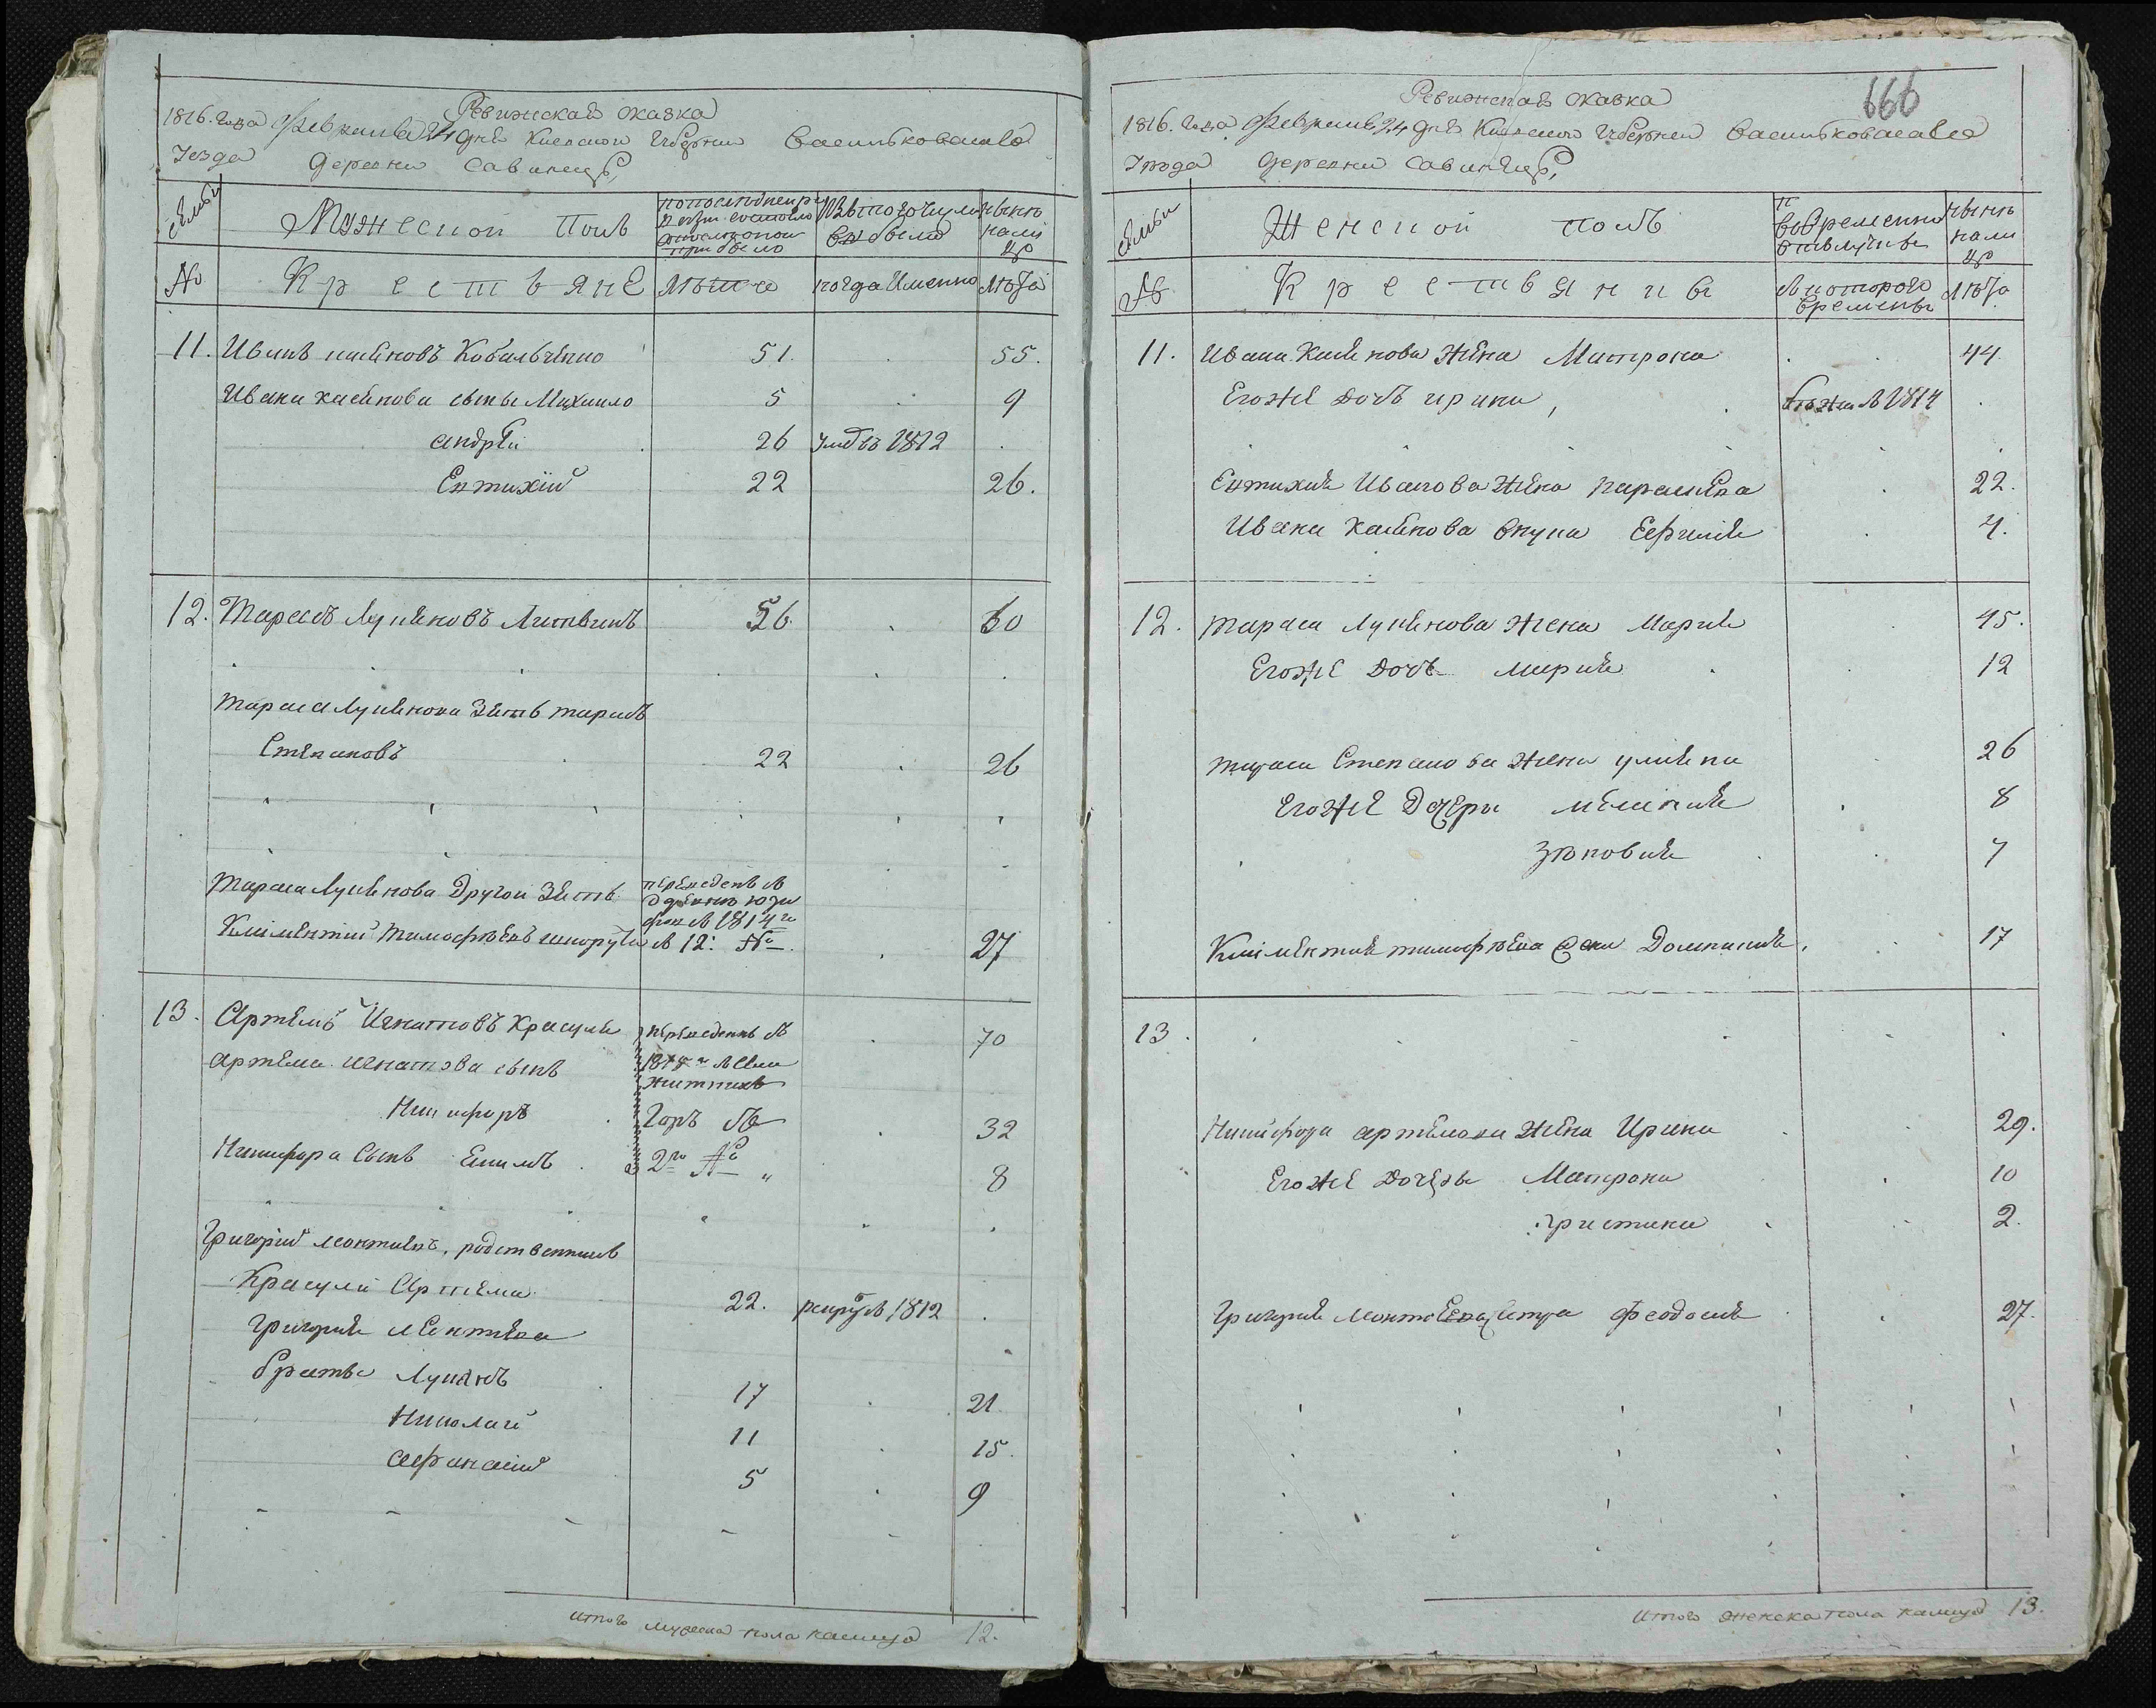 Ревижская сказка
1816. года февраля 24 дня Киевской губернии Васильковскаго
уезда деревни Савинецъ,
семьи
Мужеской полъ
по последней ревизии состояло и после оной прибыло
изъ того числа выбыло
ныне на лицо
№
Крестьяне
лета
когда Именно
лета
11. Иванъ Касяновъ Ковальченко 51. 55.
Ивана Касянова сыны Михаило 5 9
андрей 26 умеръ въ 1812
Евтихій 22 26.
12. Тарасъ Лукяновъ Литвинъ 56. 60
Тараса Лукянова зять тарасъ
Степановъ 22 26
Тараса Лукянова Другой зять
переведенъ въ
1814
Климентий Тимофеевъ 12: № 27
13. Артемъ Игнатовъ Красуля переведенъ въ 70
Артема Игнатова сынъ
Никифоръ 32
Никифора Сынъ Екимъ 2 № 8
Григорій Леонтиевъ, родственникъ
Красули Артема 22. рекрутъ 1812
Григория Леонтиева
братья Лукянъ 17 21
Николай 11 15.
Афанасий 5 9
Итого мужеска пола налицо 12.
666
Ревижская сказка
1816. года Февраля 24 дня Киевской губернии Васильковскаго
уезда деревни Савинецъ,
семьи
Женской полъ
во временной отлучке
ныне на лицо
№
Крестьянки
с котораго времени
лета
11. Ивана Касянова Жена Матрона 44
Егоже дочь ирина, 1814
Евтихия Иванова Жена параскева 22.
Ивана Касянова внука Евфимия 4.
12. Тараса Лукянова жена Мария 45.
Егоже Дочь Мария 12
Тараса Степанова жена улияна 26
Егоже Дочери мелания 8
Зеновия 7
Климентия тимофеева жена Домникия, 17
13
Никифора артемова жена Ирина 29.
Егоже Дочеры Матрона 10
христина 2.
Григория Леонтиева сестра Феодосия 27.
Итого женска пола налицо 13.